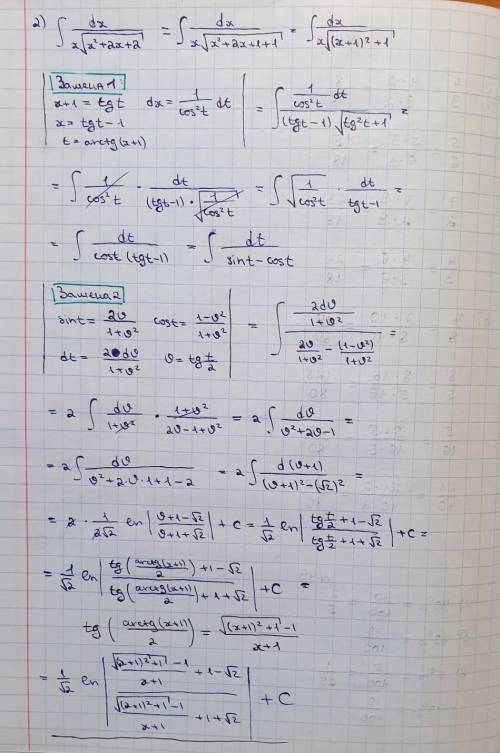 2) ∫ dx / (x√(x²+2x+2)) = ∫ dx / (x√(x²+2x+1+1)) = ∫ dx / (x√((x+1)²+1))
Замена 1:
x+1 = tgt dx = 1/cos²t dt
x = tgt-1
t = arctg(x+1)
= ∫ (1/cos²t dt) / ((tgt-1)√(tg²t+1)) =
= ∫ 1/cos²t · dt / ((tgt-1)·√(1/cos²t)) = ∫ √(1/cos²t) · dt/(tgt-1) =
= ∫ dt / (cost (tgt-1)) = ∫ dt / (sint-cost)
Замена 2
sint = 2v/(1+v²) cost = (1-v²)/(1+v²)
dt = 2dv/(1+v²) v = tg t/2
= ∫ (2dv/(1+v²)) / (2v/(1+v²) - (1-v²)/(1+v²)) =
= 2 ∫ dv/(1+v²) · (1+v²)/(2v-1+v²) = 2 ∫ dv/(v²+2v-1) =
= 2 ∫ dv/(v²+2·v·1+1-2) = 2 ∫ d(v+1)/((v+1)²-(√2)²) =
= 2 · 1/(2√2) ln |(v+1-√2)/(v+1+√2)| + C = 1/√2 ln |(tg t/2 +1-√2)/(tg t/2 +1+√2)| + C =
= 1/√2 ln |(tg(arctg(x+1)/2)+1-√2)/(tg(arctg(x+1)/2)+1+√2)| + C =
tg(arctg(x+1)/2) = (√((x+1)²+1)-1)/(x+1)
= 1/√2 ln |((√((x+1)²+1)-1)/(x+1) +1-√2)/((√((x+1)²+1)-1)/(x+1) +1+√2)| + C